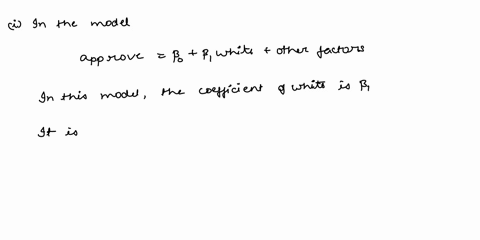 (i) In the model
approve = β₀ + β₁ white + other factors
In this model, the coefficient of white is β₁
It is